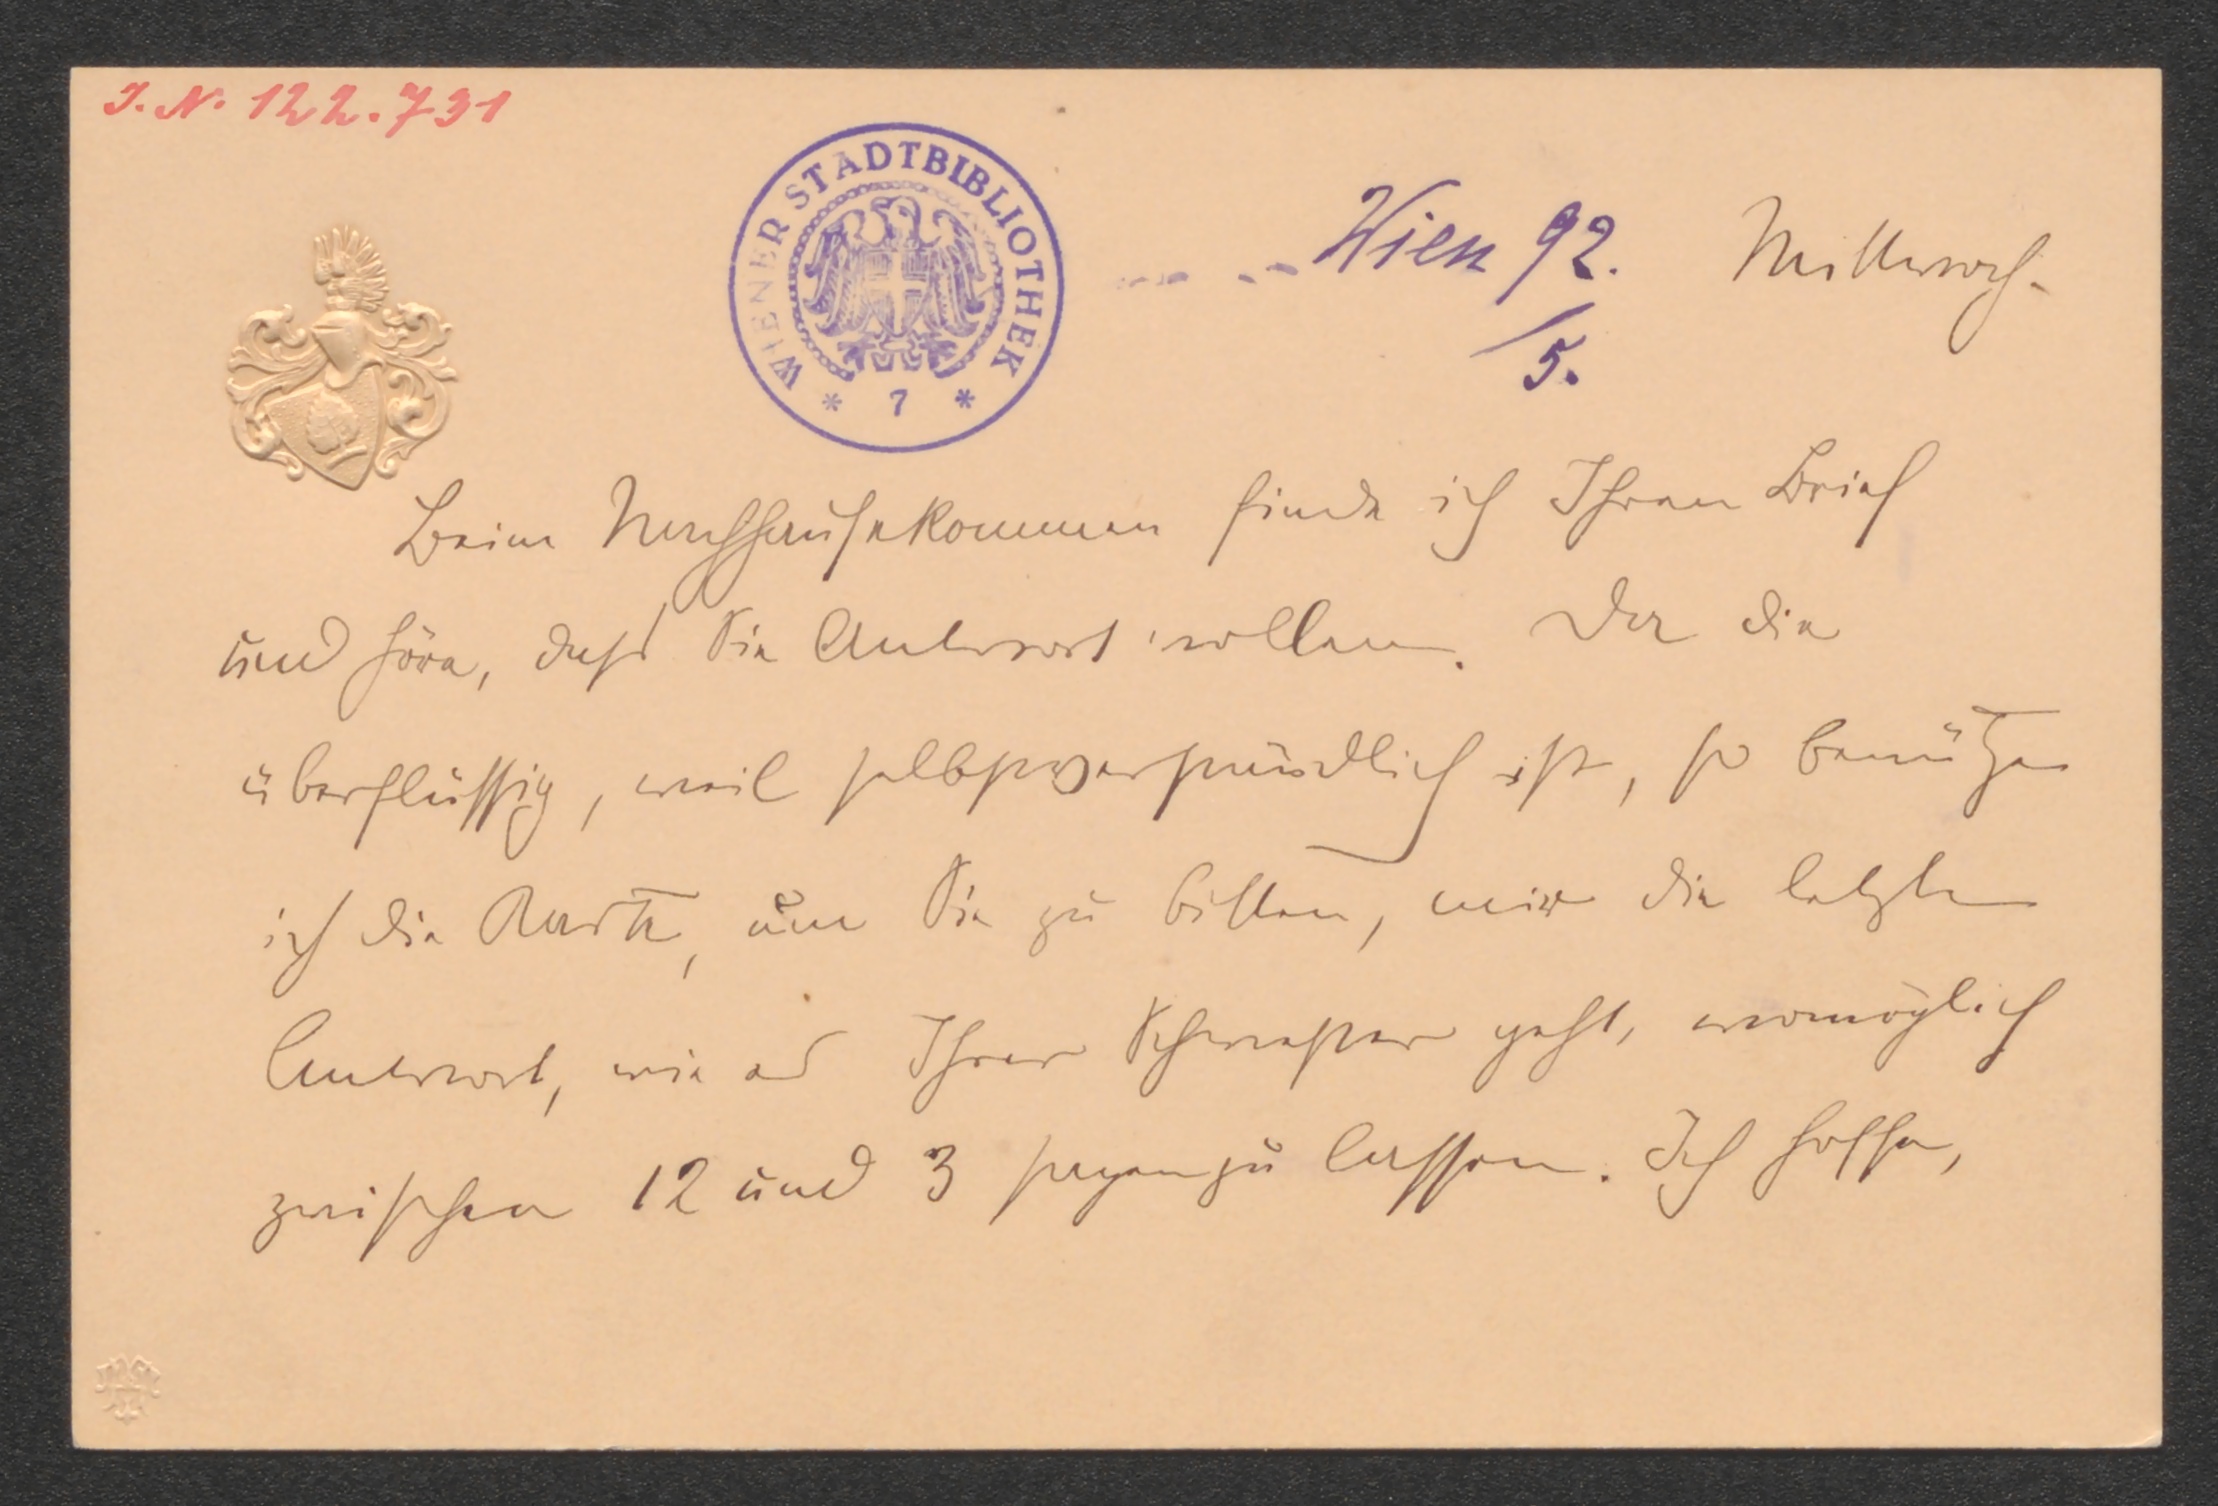 J. N. 122.731
WIENER STADTBIBLIOTHEK
* 7 *
Wien 92. Mittwoch.
/5.
Beim Nachhausekommen finde ich Ihren Brief
und höre, dass Sie Antwort wollen. Da die
überflüssig, weil selbstverständlich ist, so benütze
ich die Karte, um Sie zu bitten, mir die letzte
Antwort, wie es Ihrer Schwester geht, womöglich
zwischen 12 und 3 sagen zu lassen. Ich hoffe,